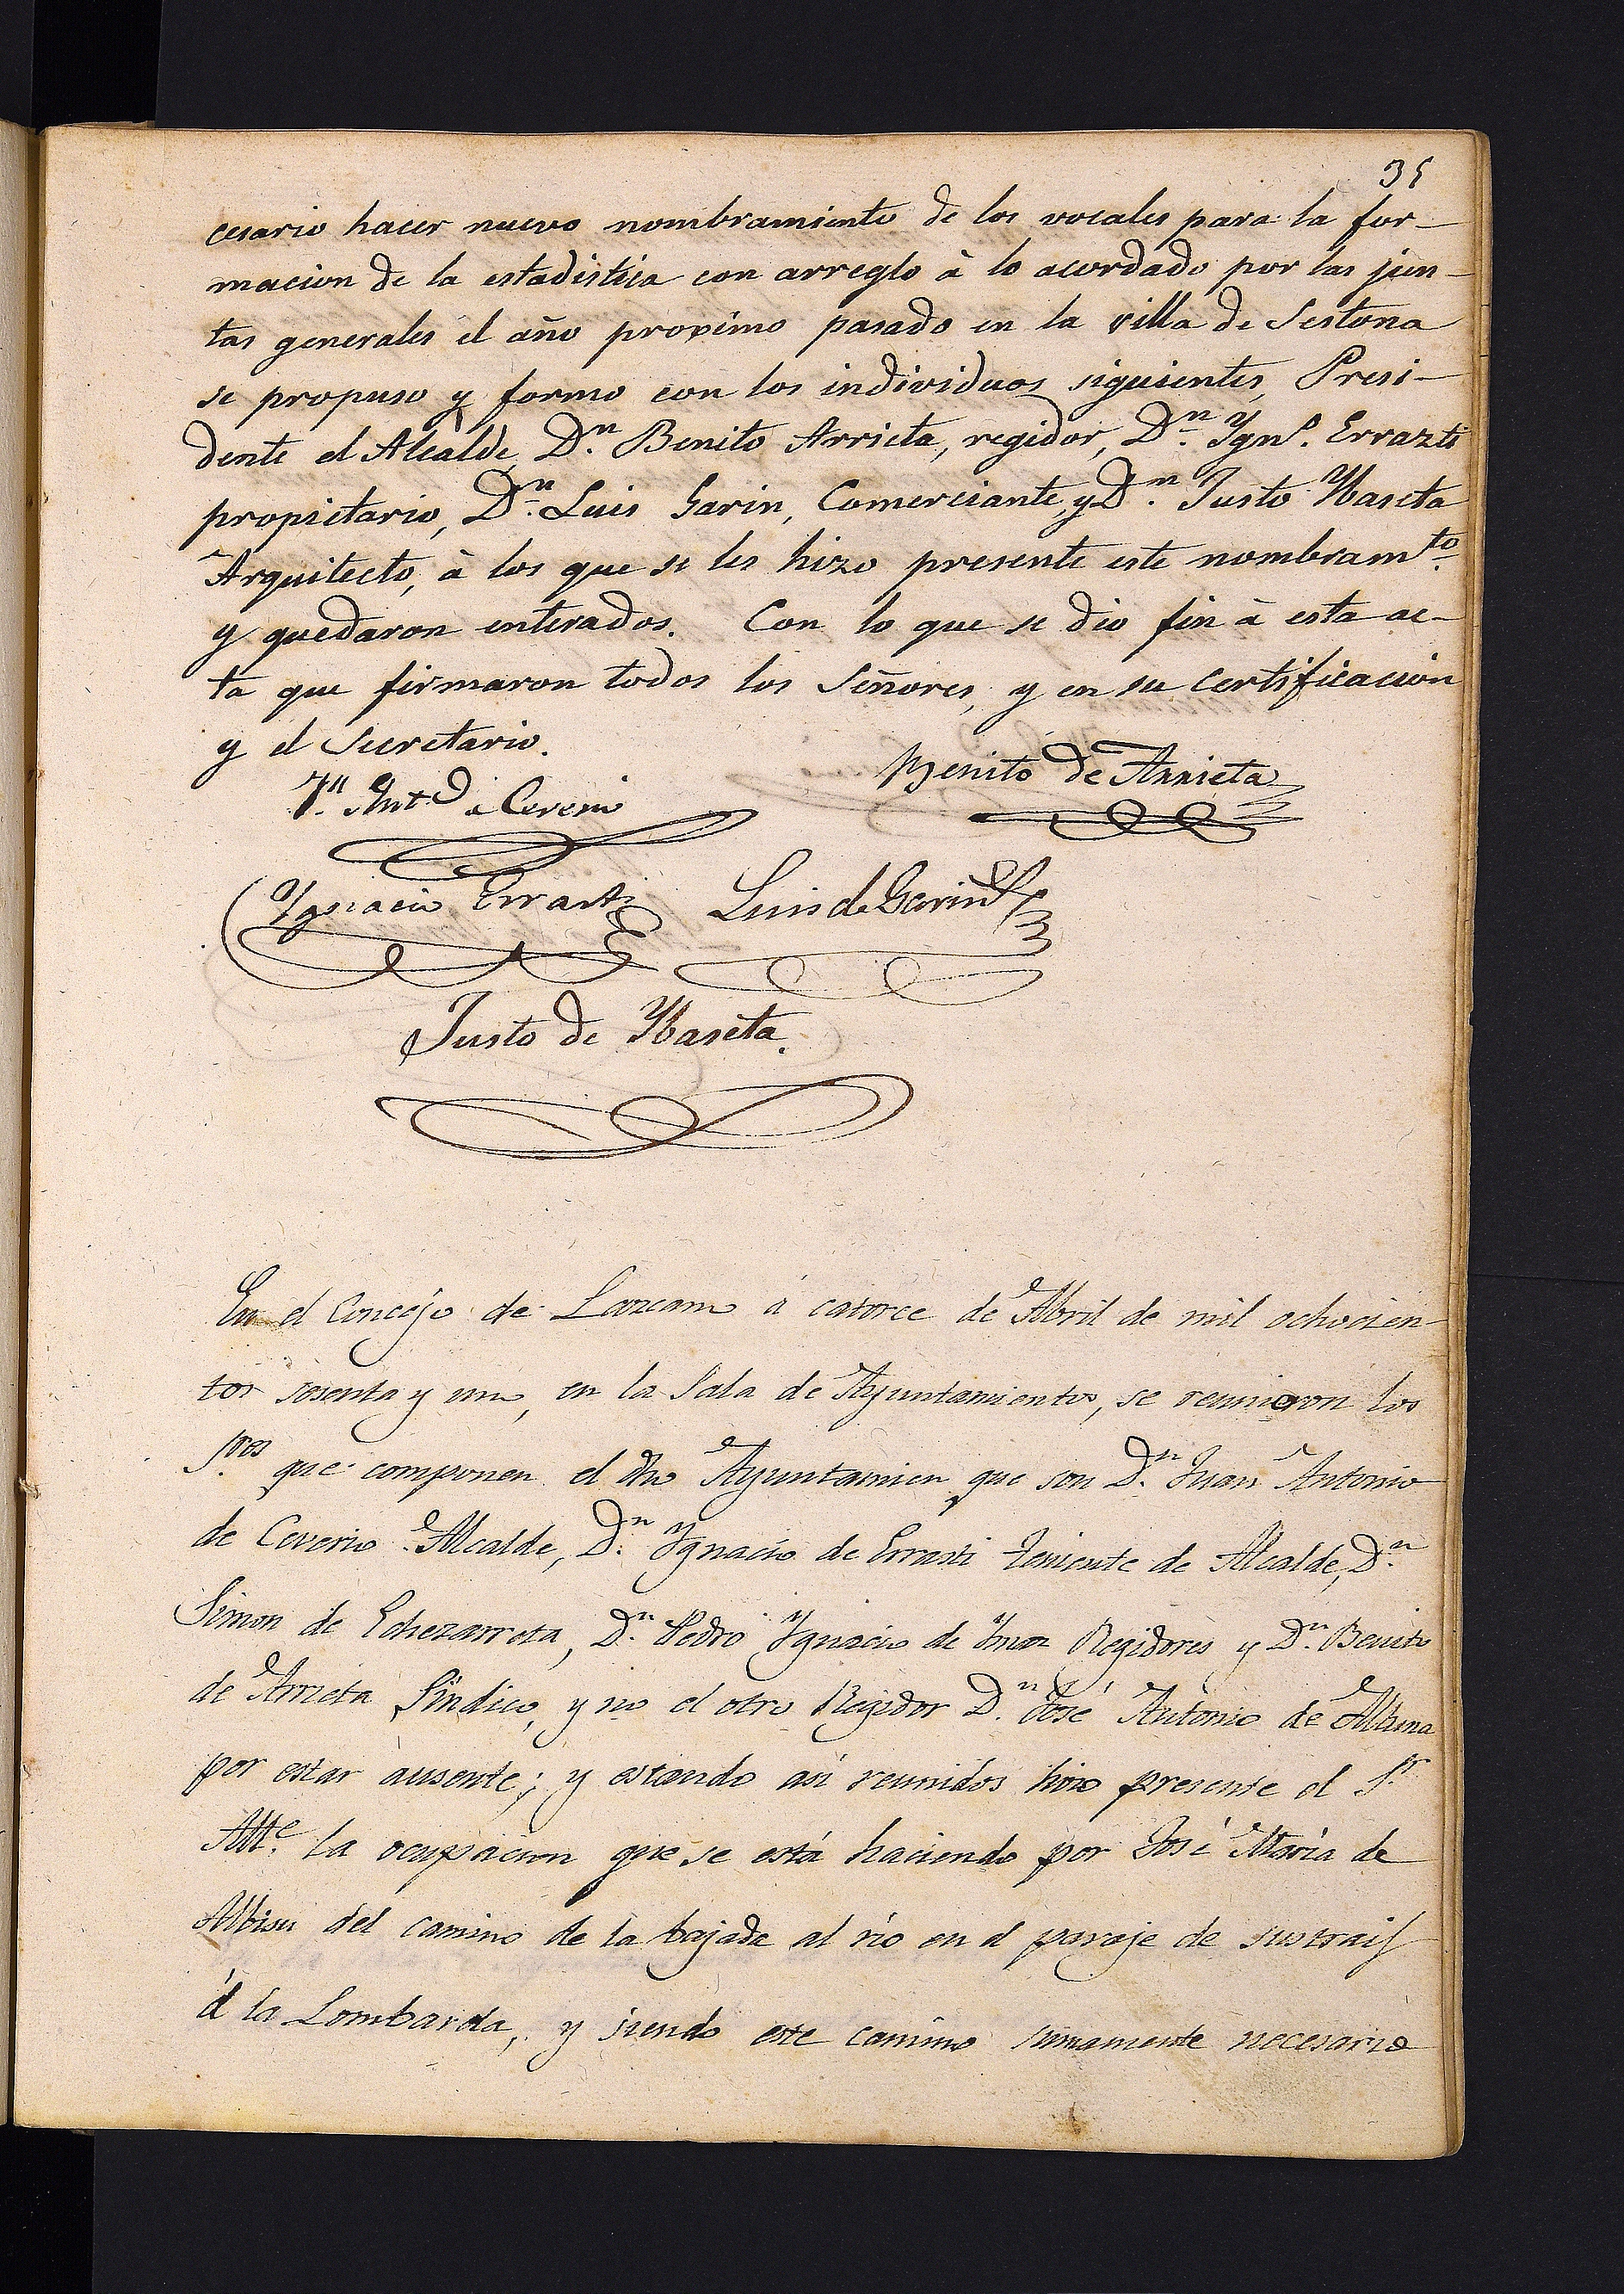 35
cesario hacer nuevo nombramiento de los vocales para la for-
macion de la estadistica con arreglo à lo acordado por las jun-
tas generales el año proximo pasado en la villa de Sestona
se propuso y formo con los individuos siguientes, Presi-
dente el Alcalde, Dn. Benito Arrieta, regidor, Dn. Ygno. Errazti
propietario, Dn. Luis Garin, Comerciante, y Dn. Justo Ybaseta
Arquitecto, à los que se les hizo presente este nombramto.
y quedaron enterados. Con lo que se dio fin à esta ac-
ta que firmaron todos los Señores, y en su certificacion
y el Secretario.
Benito de Arrieta
Jn. Anto. de Ceverio
Ygnacio Errasti Luis de Garin
Justo de Ybaseta.
En el Concejo de Lazcano á catorce de Abril de mil ochocien-
tos sesenta y uno, en la Sala de Ayuntamiento, se reunieron los
Sres. que componen el dho Ayuntamien que son Dn. Juan Antonio
de Ceverio Alcalde, Dn. Ygnacio de Errasti Teniente de Alcalde, Dn.
Simon de Echezarreta, Dn. Pedro Ygnacio de Ymaz Regidores y Dn. Benito
de Arrieta Sindico, y no el otro Regidor Dn. José Antonio de
por estar ausente; y estando asi reunidos hizo presente el Sr.
Alle. la ocupacion que se está haciendo por José Maria de
Albisu del camino de la bajada al rio en el paraje de
á la Lombarda, y siendo este camino sumamente necesario